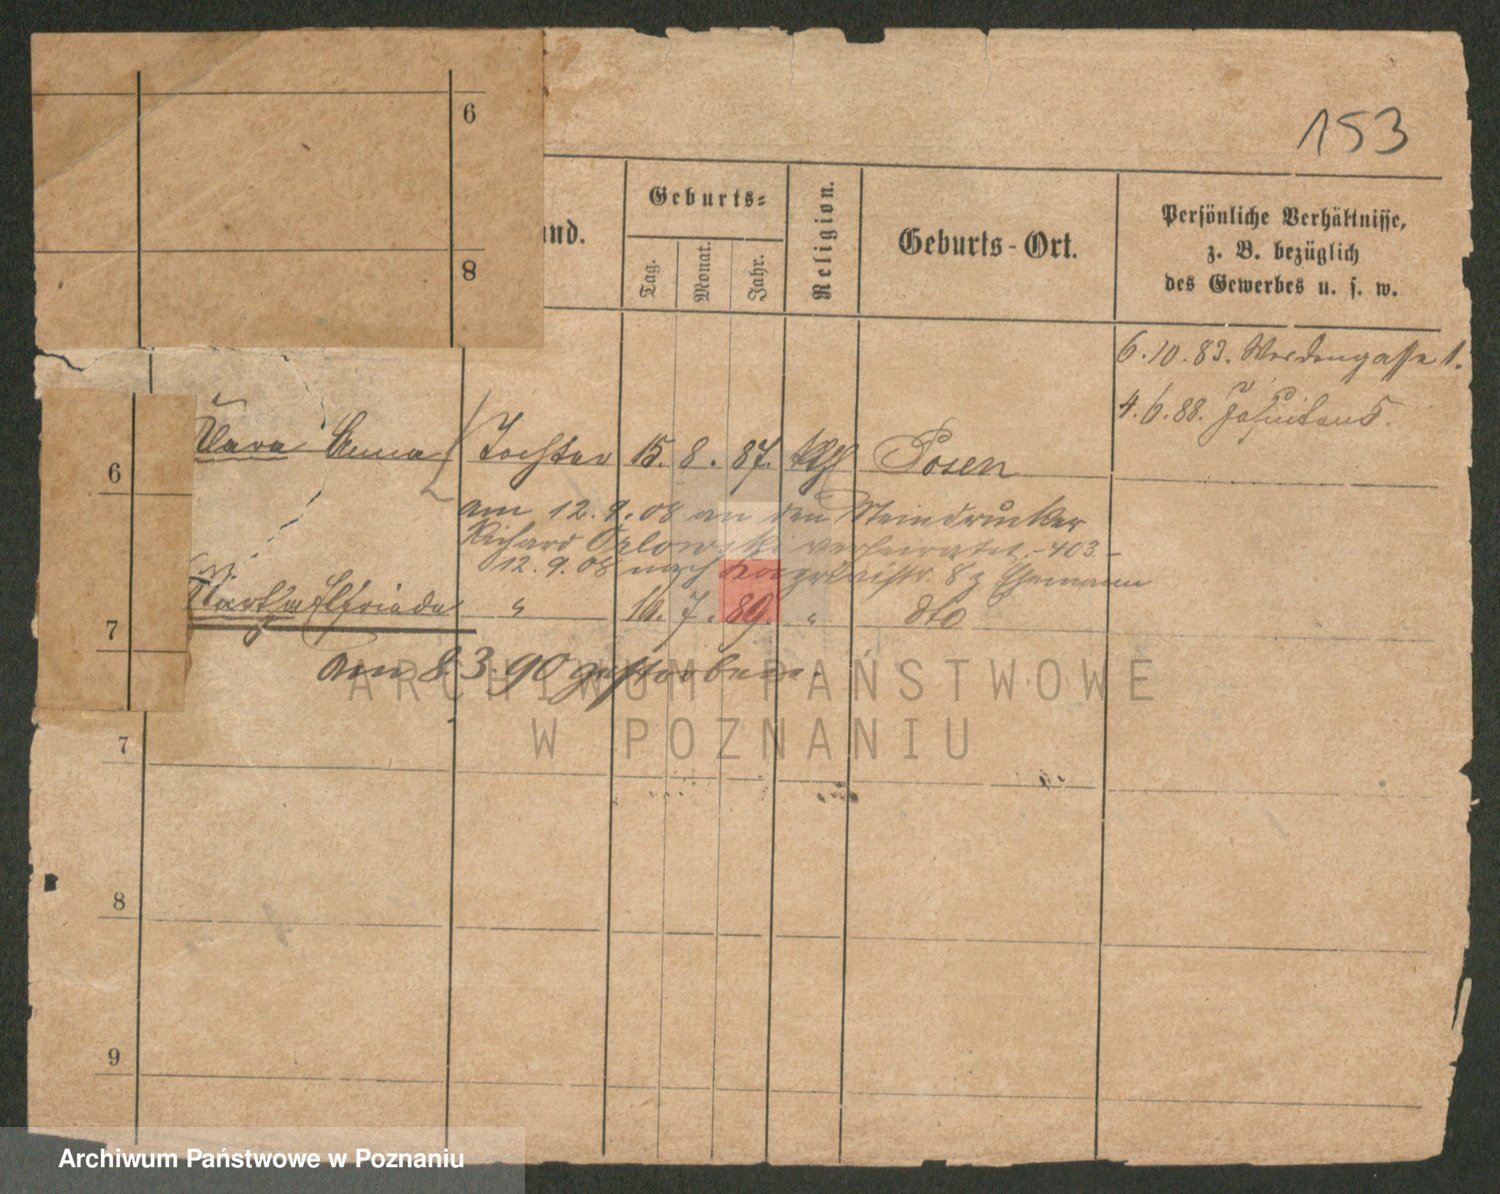 153
6
8
and.
Geburts=
Tag.
Monat.
Jahr.
Religion.
Geburts-Ort.
Persönliche Verhältnisse,
z. B. bezüglich
des Gewerbes u. s. w.
6.10.83. 1.
4.6.88. Jesuiten 5.
6 Anna Tochter 15. 8. 87. kth Posen
am 12.9.08 an den Steindrucker
Richard Orlowski verheiratet. -403-
12.9.08 nach 8 z Ehemann
7 Martha Elfriede " 16. 7. 89. " dto
am 8.3.90 gestorben.
7
8
9
ARCHIWUM PAŃSTWOWE
W POZNANIU
Archiwum Państwowe w Poznaniu